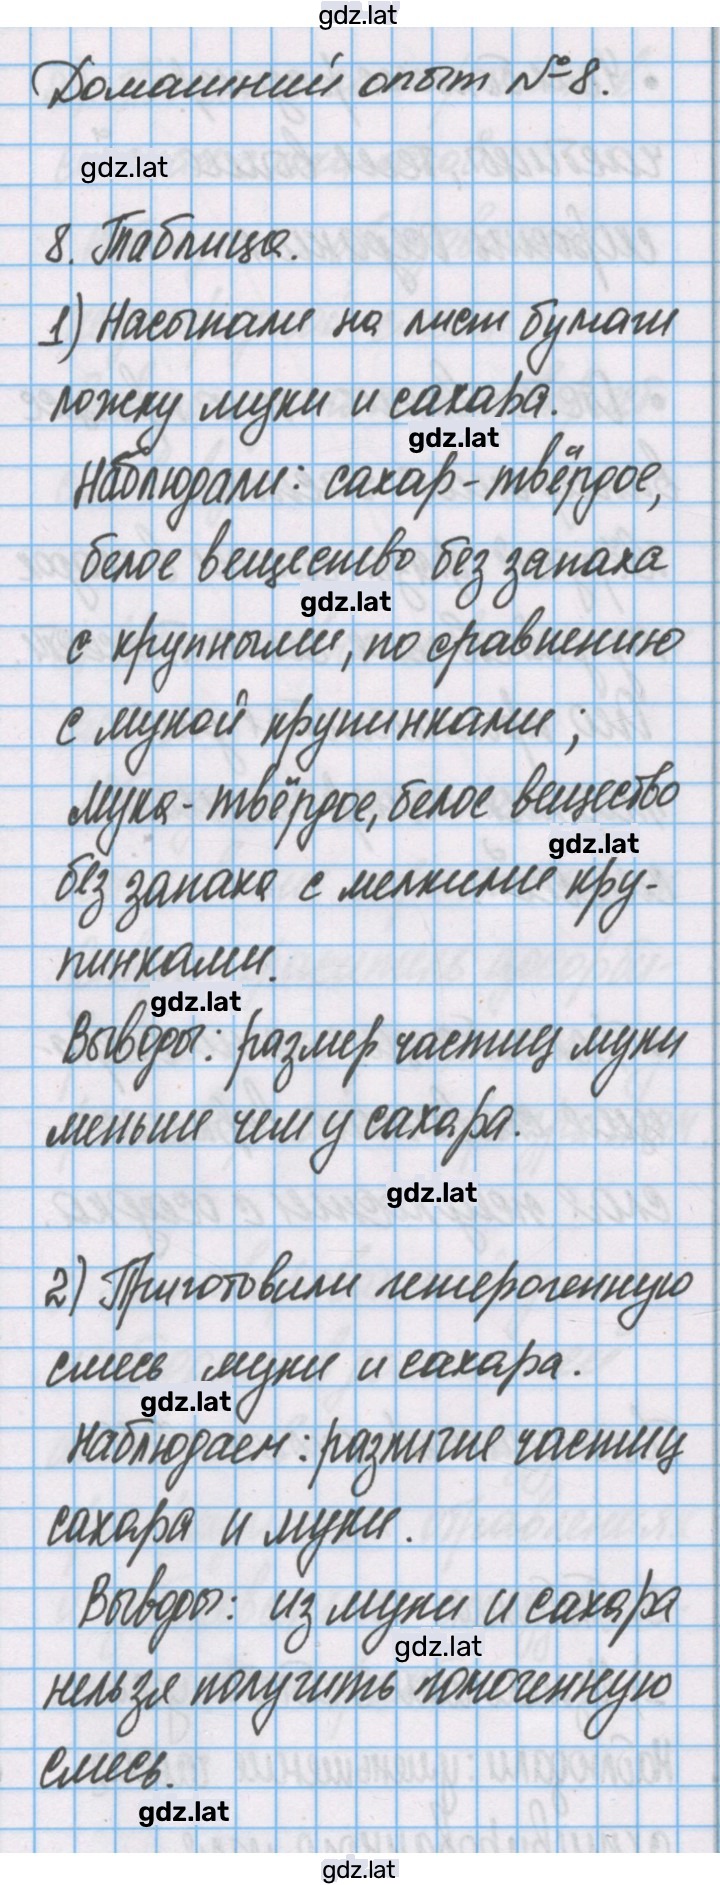 gdz.lat
Домашний опыт №8.
gdz.lat
8. Таблица.
1) Насыпали на лист бумаги
ложку муки и сахара.
gdz.lat
Наблюдали: сахар - твёрдое,
белое вещество без запаха
gdz.lat
с крупными, по сравнению
с мукой крупинками;
мука - твёрдое, белое вещество
gdz.lat
без запаха с мелкими кру-
пинками.
gdz.lat
Выводы: размер частиц муки
меньше чем у сахара.
gdz.lat
2) Приготовили гетерогенную
смесь муки и сахара.
gdz.lat
Наблюдаем: различие частиц
сахара и муки.
Выводы: из муки и сахара
gdz.lat
нельзя получить гомогенную
смесь.
gdz.lat
gdz.lat